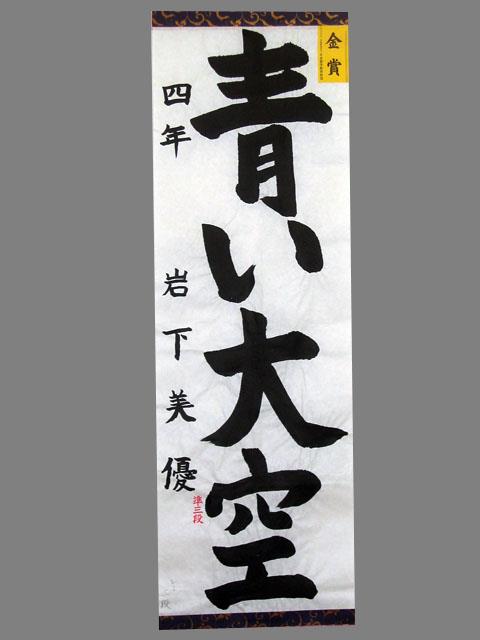 金賞
青い大空
四年 岩下美優
準三段